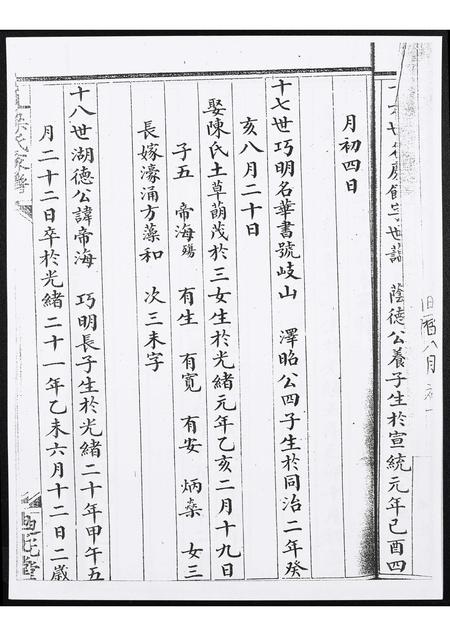 蔭德公養子生於宣統元年己酉四
月初四日
十七世巧明名華書號岐山 澤昭公四子生於同治二年癸
亥八月二十日
娶陳氏土草蓢茂於三女生於光緒元年乙亥二月十九日
子五 帝海殤 有生 有寬 有安 炳燊 女三
長嫁濠涌方藻和 次三未字
十八世湖德公諱帝海 巧明長子生於光緒二十年甲午五
月二十二日卒於光緒二十一年乙未六月十二日二歲
梁氏家譜
旧曆八月